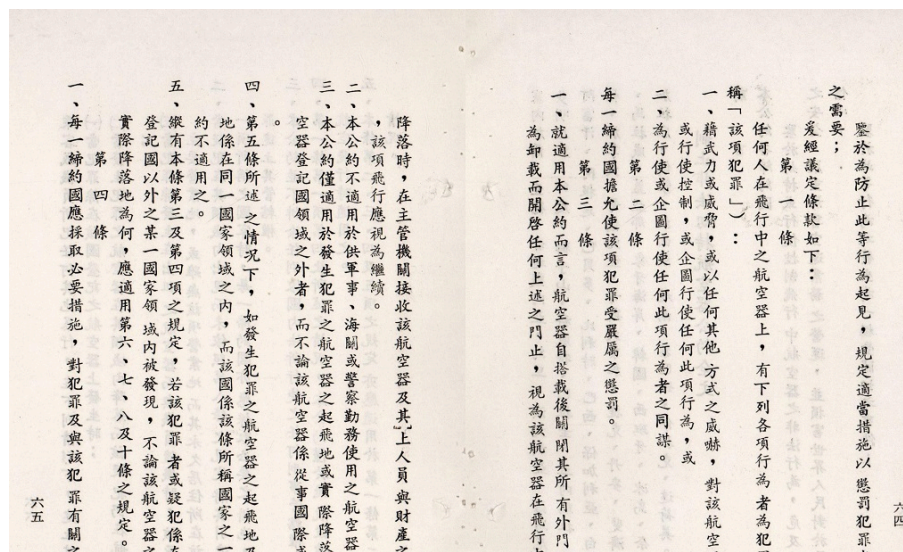 鑒於為防止此等行為起見，規定適當措施以懲罰犯罪
之需要；
爰經議定條款如下：
第一條
任何人在飛行中之航空器上，有下列各項行為者為犯
稱「該項犯罪」）：
一、藉武力或威脅，或以任何其他方式之威嚇，對該航空
或行使控制，或企圖行使任何此項行為，或
二、為行使或企圖行使任何此項行為者之同謀。
第二條
每一締約國擔允使該項犯罪受嚴厲之懲罰。
第三條
一、就適用本公約而言，航空器自搭載後關閉其所有外門
為卸載而開啓任何上述之門止，視為該航空器在飛行
六四
降落時，在主管機關接收該航空器及其上人員與財產
，該項飛行應視為繼續。
二、本公約不適用於供軍事、海關或警察勤務使用之航空器
三、本公約僅適用於發生犯罪之航空器之起飛地或實際降
空器登記國領域之外者，而不論該航空器係從事國際
。
四、第五條所述之情況下，如發生犯罪之航空器之起飛地
地係在同一國家領域之內，而該國係該條所稱國家之一
約不適用之。
五、縱有本條第三及第四項之規定，若該犯罪者或疑犯係在
登記國以外之某一國家領域內被發現，不論該航空器之
實際降落地為何，應適用第六、七、八及十條之規定。
第四條
一、每一締約國應採取必要措施，對犯罪及與該犯罪有關之
六五